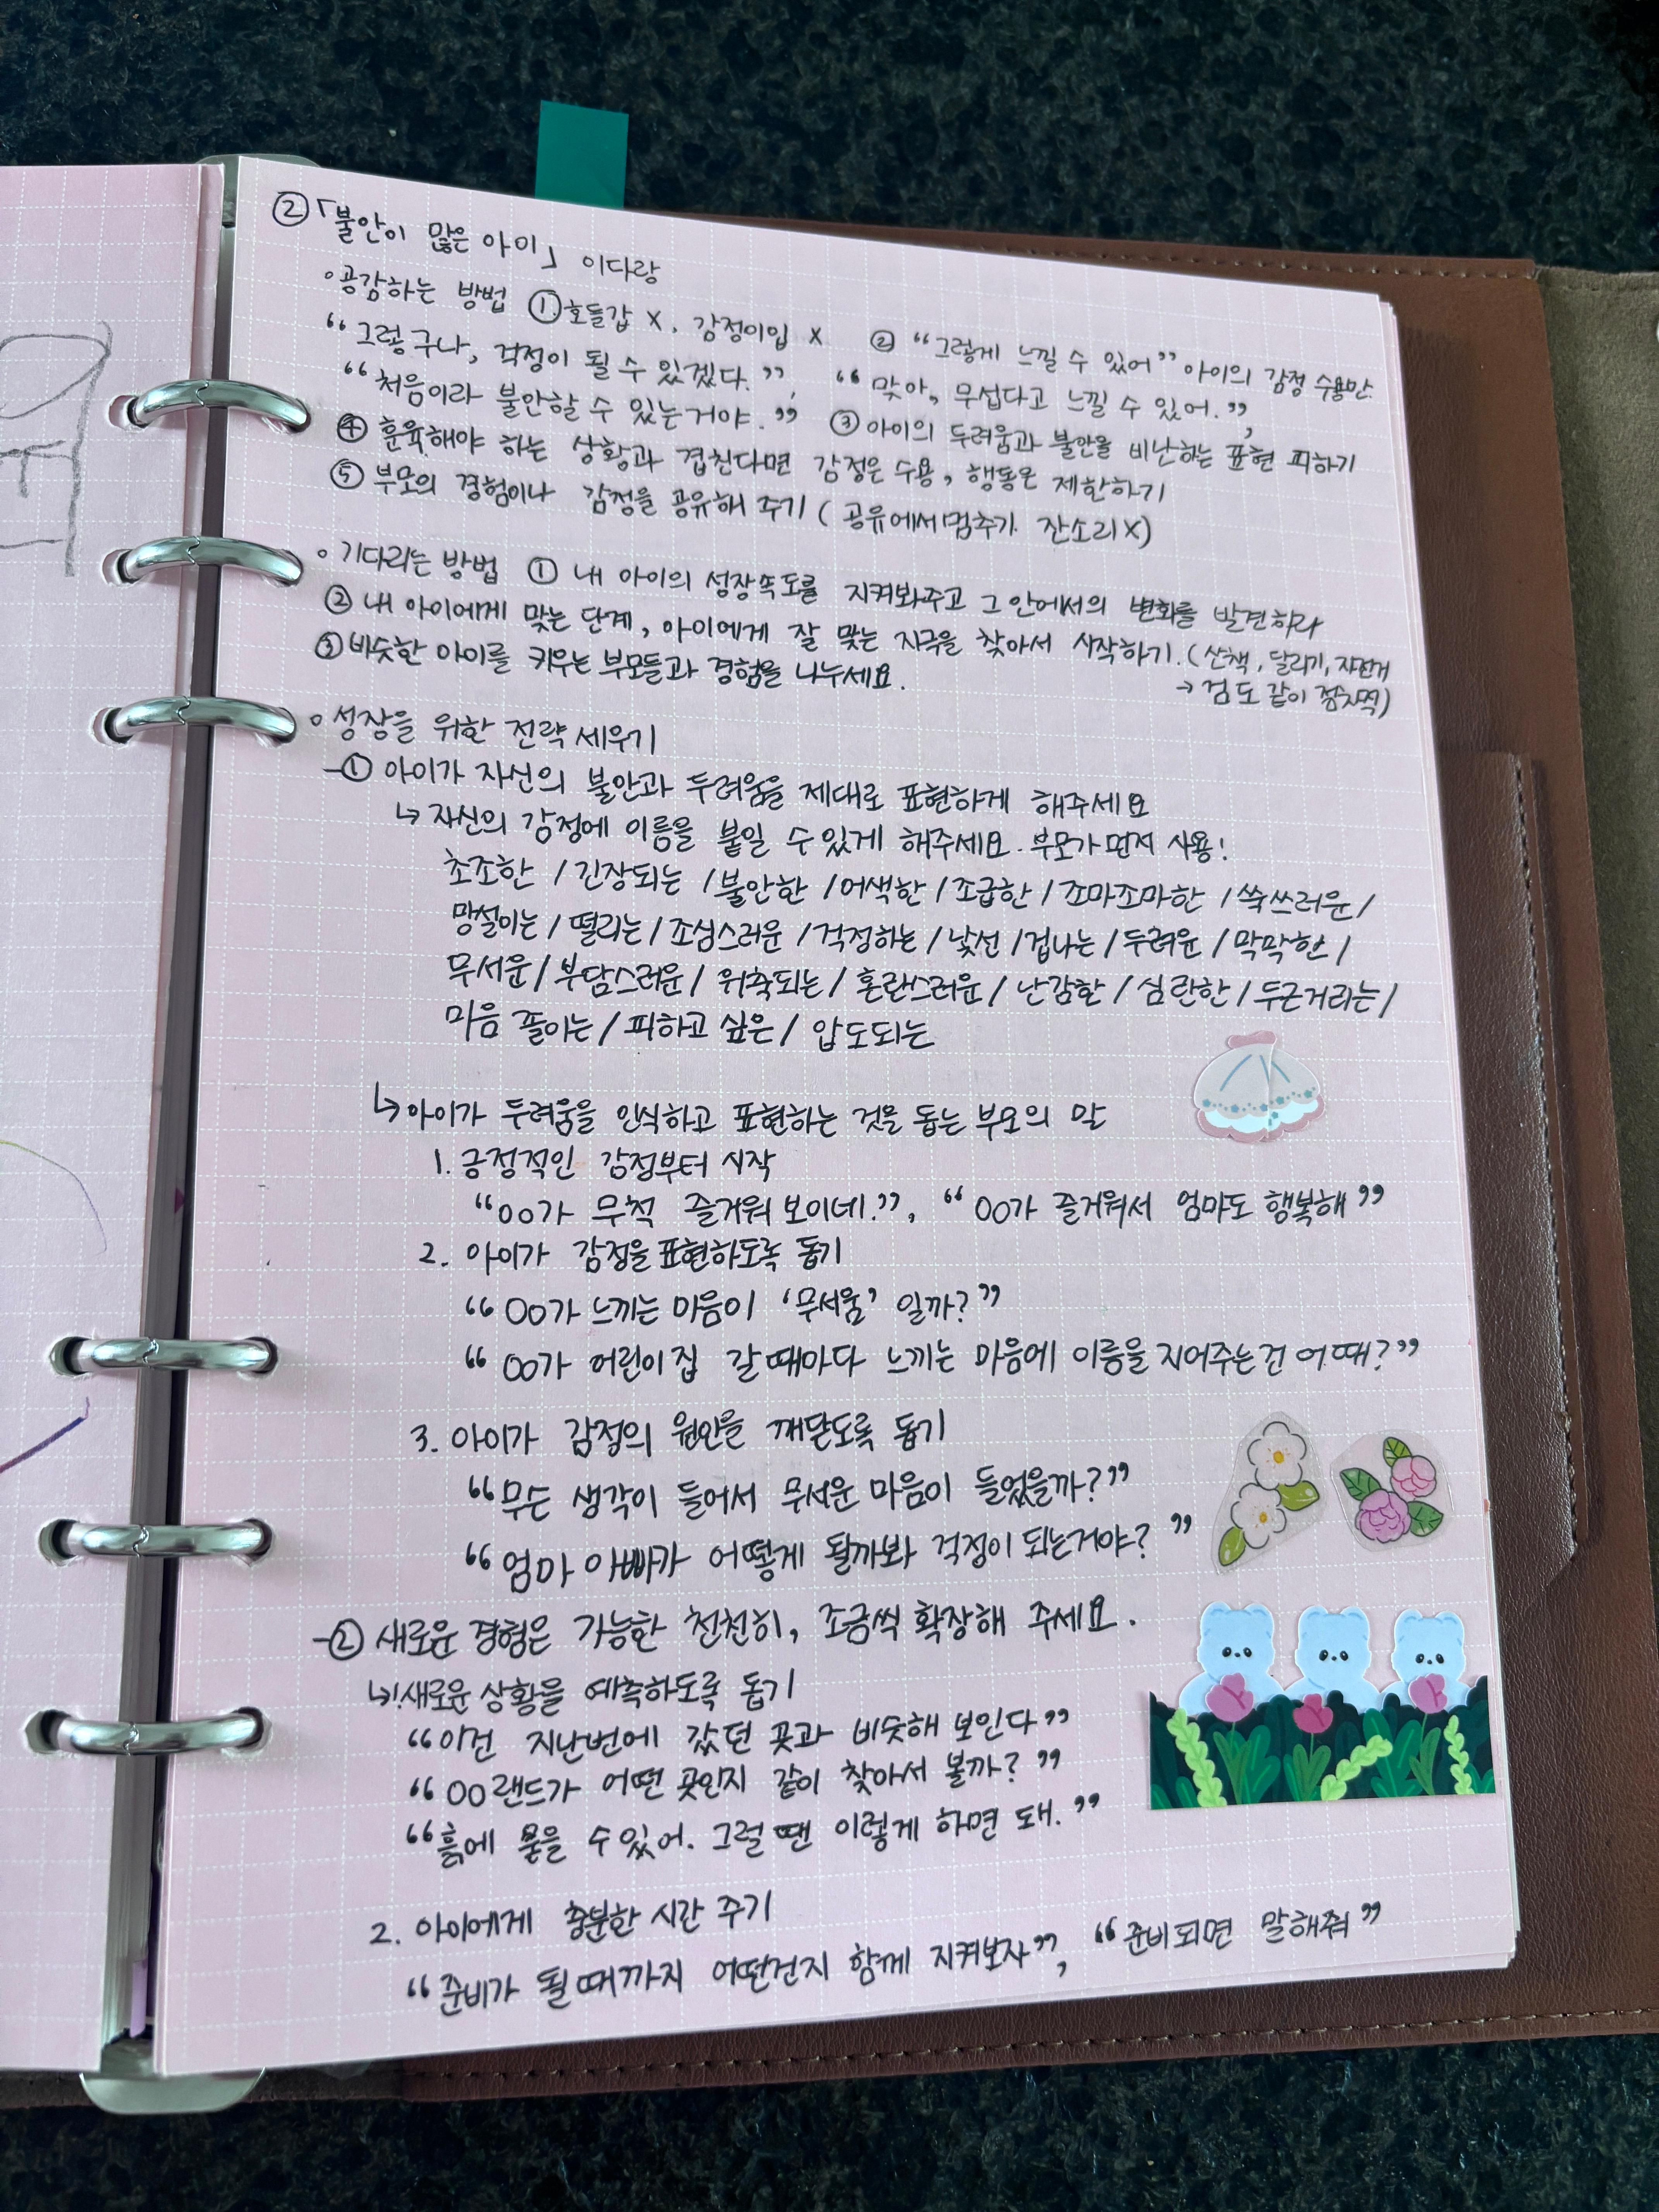 ② 「불안이 많은 아이」 이다랑
◦공감하는 방법 ① 호들갑 X, 감정이입 X ② “그렇게 느낄 수 있어” 아이의 감정 수용만.
“그렇구나, 걱정이 될 수 있겠다.”, “맞아, 무섭다고 느낄 수 있어.”,
“처음이라 불안할 수 있는거야.” ③ 아이의 두려움과 불안을 비난하는 표현 피하기
④ 훈육해야 하는 상황과 겹친다면 감정은 수용, 행동은 제한하기
⑤ 부모의 경험이나 감정을 공유해 주기 (공유에서 멈추기 잔소리X)
◦기다리는 방법 ① 내 아이의 성장속도를 지켜봐주고 그 안에서의 변화를 발견하라
② 내 아이에게 맞는 단계, 아이에게 잘 맞는 자극을 찾아서 시작하기. (산책, 달리기, 자전거
→ 검도 같이 점차적)
③ 비슷한 아이를 키우는 부모들과 경험을 나누세요.
◦성장을 위한 전략 세우기
-① 아이가 자신의 불안과 두려움을 제대로 표현하게 해주세요
↳ 자신의 감정에 이름을 붙일 수 있게 해주세요. 부모가 먼저 사용!
초조한 / 긴장되는 / 불안한 / 어색한 / 조급한 / 조마조마한 / 쑥쓰러운 /
망설이는 / 떨리는 / 조심스러운 / 걱정하는 / 낯선 / 겁나는 / 두려운 / 막막한 /
무서운 / 부담스러운 / 위축되는 / 혼란스러운 / 난감한 / 심란한 / 두근거리는 /
마음 졸이는 / 피하고 싶은 / 압도되는
↳ 아이가 두려움을 인식하고 표현하는 것을 돕는 부모의 말
1. 긍정적인 감정부터 시작
“OO가 무척 즐거워 보이네.”, “OO가 즐거워서 엄마도 행복해”
2. 아이가 감정을 표현하도록 돕기
“OO가 느끼는 마음이 ‘무서움’ 일까?”
“OO가 어린이집 갈 때마다 느끼는 마음에 이름을 지어주는건 어때?”
3. 아이가 감정의 원인을 깨닫도록 돕기
“무슨 생각이 들어서 무서운 마음이 들었을까?”
“엄마 아빠가 어떻게 될까봐 걱정이 되는거야?”
-② 새로운 경험은 가능한 천천히, 조금씩 확장해 주세요.
↳ 1. 새로운 상황을 예측하도록 돕기
“이건 지난번에 갔던 곳과 비슷해 보인다”
“OO랜드가 어떤 곳인지 같이 찾아서 볼까?”
“흙에 묻을 수 있어. 그럴 땐 이렇게 하면 돼.”
2. 아이에게 충분한 시간 주기
“준비가 될 때까지 어떤건지 함께 지켜보자”, “준비되면 말해줘”